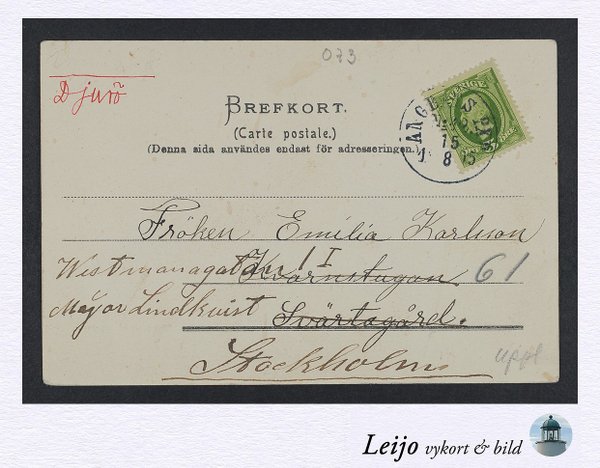 073
Djurö
BREFKORT.
(Carte postale.)
(Denna sida användes endast för adresseringen.)
SVERIGE
15
8
Fröken Emilia Karlsson
Westmanagatan 61
Kvarnstugan
Major Lindkvist
Svärtagård.
Stockholm
uppl
Leijo vykort & bild